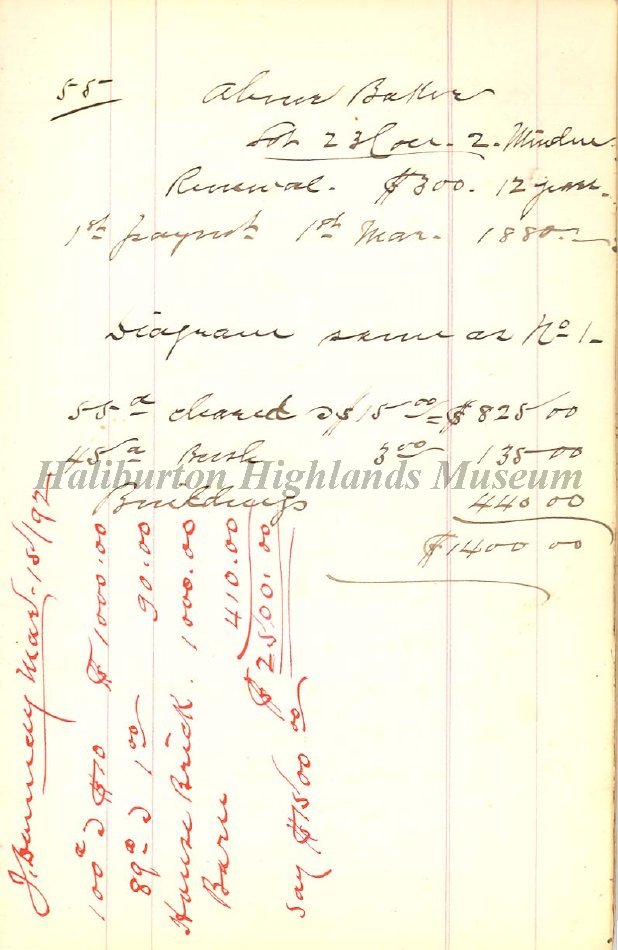 55 Abner Baker
Lot 23 Con. 2. Minden
Renewal. $300. 12 years.
1st paymt 1st Mar. 1880.
Diagram same as No 1.
55a cleared @ $15.00 = $825.00
45a Bush 3.00 135.00
Buildings 440.00
$1400.00
Haliburton Highlands Museum
Mar. 15/92
100a @ $10 $1000.00
89a @ 1.00 90.00
House Brick. 1000.00
Barn 410.00
$2500.00
Say $1500.00